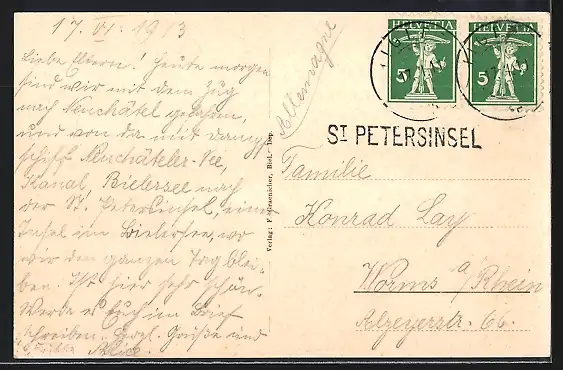 17. VI. 1913
Liebe Eltern. Heute morgen
sind wir mit dem Zug
nach Neuchâtel gefahren,
und von da mit Dampf-
schiff Neuchâteler-See,
Kanal, Bielersee nach
der St. Petersinsel, eine
Insel im Bielersee, wo
wir den ganzen Tag blei-
ben. Ist hier sehr schön.
Werde es Euch im Brief
schreiben. Herzl. Grüße und
Alice.
Verlag: F. Graenicher, Biel. - Dep.
Allemagne
HELVETIA
5
HELVETIA
5
ST PETERSINSEL
Familie
Konrad Lay
Worms a/Rhein
Alzeyerstr. 66.